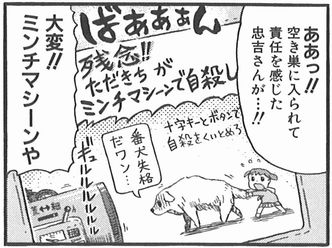 ああっ!!
空き巣に入られて
責任を感じた
忠吉さんが…!!
ばあぁぁぁん
残念!!
ただきちが
ミンチマシーンで自殺し
十字キーとボタンで
自殺をくいとめろ
番犬失格
だワン…
ギュルルルルル
大変!!
ミンチマシーンや